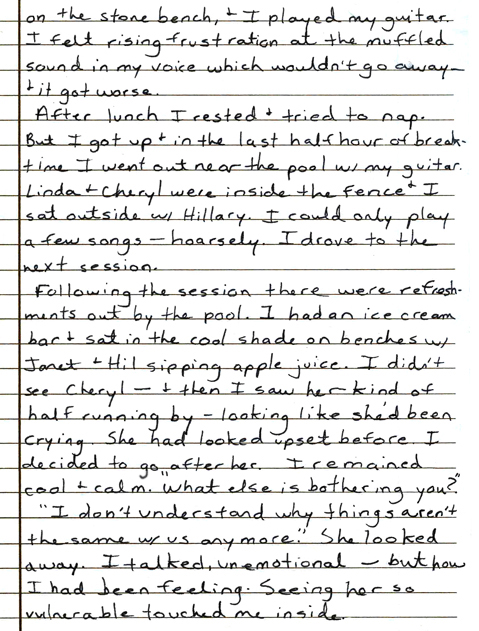 on the stone bench, + I played my guitar.
I felt rising frustration at the muffled
sound in my voice which wouldn't go away—
+ it got worse.
After lunch I rested + tried to nap.
But I got up + in the last half hour of break-
time I went out near the pool w/ my guitar.
Linda + Cheryl were inside the fence + I
sat outside w/ Hillary. I could only play
a few songs — hoarsely. I drove to the
next session.
Following the session there were refresh-
ments out by the pool. I had an ice cream
bar + sat in the cool shade on benches w/
Janet + Hil sipping apple juice. I didn't
see Cheryl — + then I saw her kind of
half running by — looking like she'd been
crying. She had looked upset before. I
decided to go after her. I remained
cool + calm. "What else is bothering you?"
"I don't understand why things aren't
the same w/ us anymore." She looked
away. I talked, unemotional — but how
I had been feeling. Seeing her so
vulnerable touched me inside.